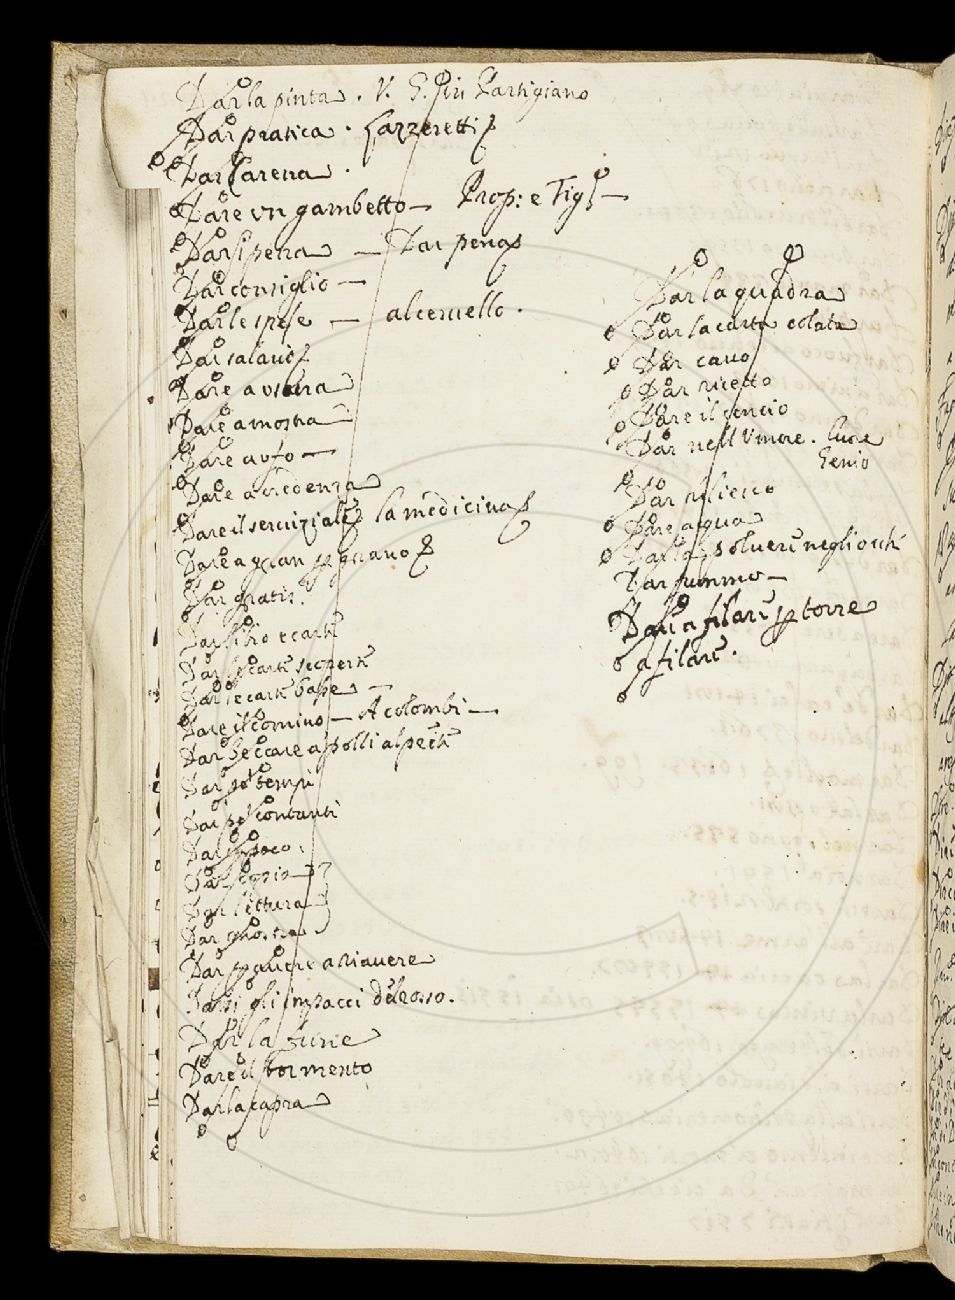 Dar la pinta. V. G. Piu Partigiano
Dar pratica. Lazzeretti
Dar l'arena.
Dare un gambetto — Prop: e Fig —
Darsi pena — Dar pena
Dar consiglio —
Dar le spese — al cervello.
Dar salario
Dare a usura
Dare a mostra —
Dare a ufo —
Dare a credenza
Dare il serviziale la medicina
Dare a gran
Dar gratis.
Dar libro e carte
Dar le carte scoperte
Dar le carte basse —
Dare il comino — A colombi —
Dar beccare a polli al
Dar pe tempi
Dar pe contanti
Dar poco.
Dar
Dar lettura
Dar
Dar avere a riavere
Darsi gl'impacci del Rosso.
Dar la fune
Dare il tormento
Dar la capra
Dar la quadra
Dar la carta colata
Dar cavo
Dar ricetto
Dare il cencio
Dar nell umore. Cuore
Genio
Dar
Dare acqua
Dar la polvere negli occhi
Dar fummo —
Dare a filare torre
a filare.